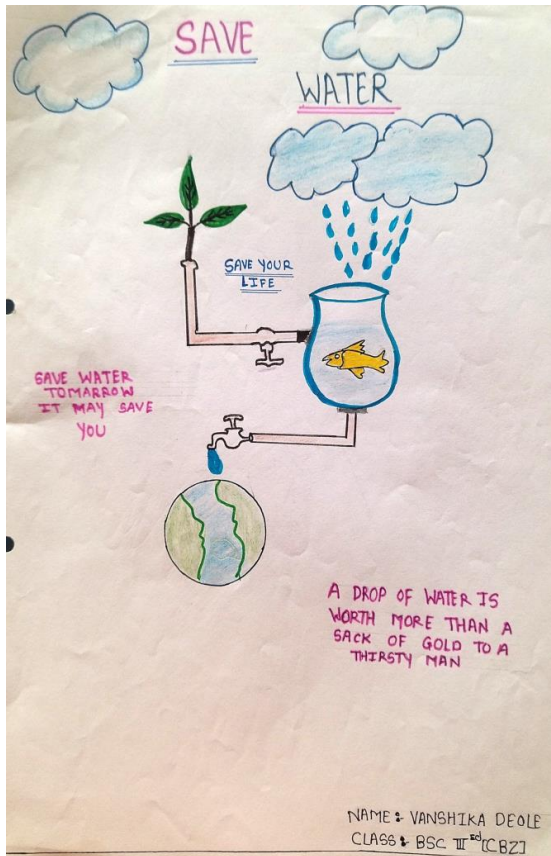 SAVE
WATER
SAVE YOUR
LIFE
SAVE WATER
TOMARROW
IT MAY SAVE
YOU
A DROP OF WATER IS
WORTH MORE THAN A
SACK OF GOLD TO A
THIRSTY MAN
NAME:- VANSHIKA DEOLE
CLASS:- BSC III ed [CBZ]